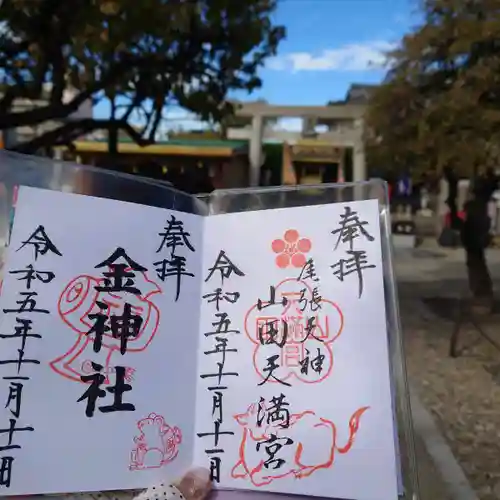 奉拝
金神社
令和五年十一月十一日
奉拝
尾張天神
山田天満宮
令和五年十一月十一日